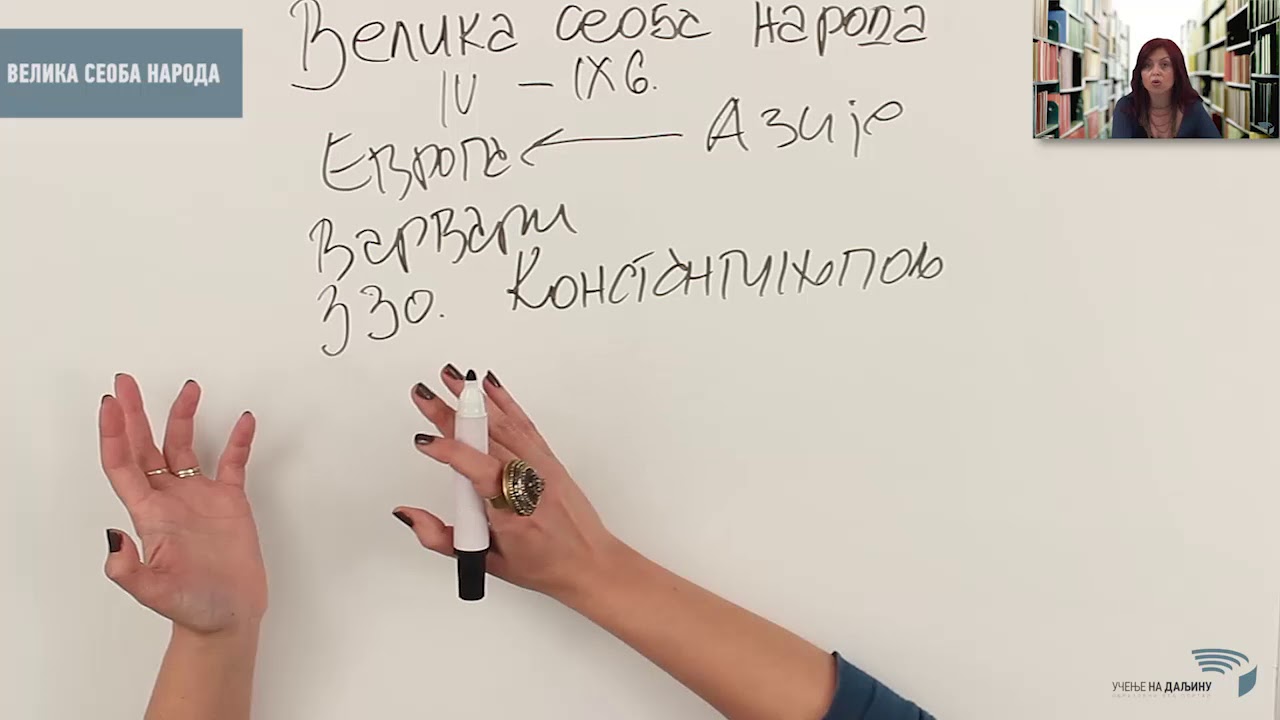 ВЕЛИКА СЕОБА НАРОДА
Велика сеоба народа
IV – IX в.
Европа ← Азије
Варвари
330. Константинопољ
УЧЕЊЕ НА ДАЉИНУ